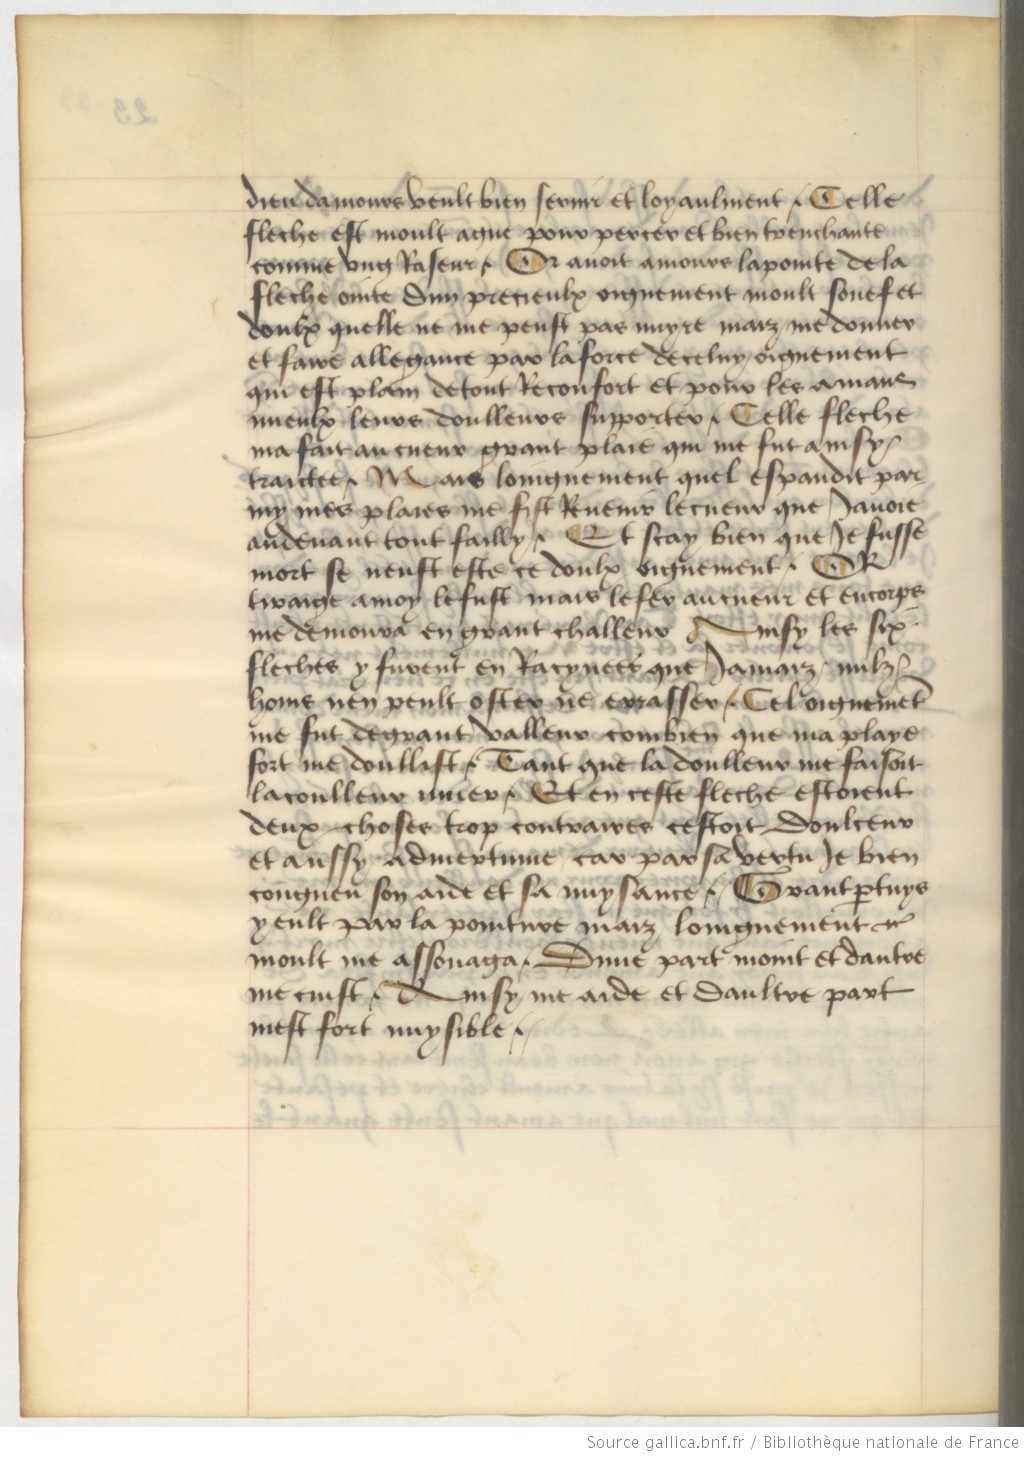 dieu damours veult bien servir et loyaulment / Telle
fleche est moult ague pour percer et bien trenchante
comme ung Raseur / Or avoit amours la pointe de la
fleche ointe dun precieulx oignement moult souef et
doulx quelle ne me peust pas nuyre maiz me donner
et faire allegance par la force de celuy oignement
qui est plain de tout Reconfort et pour les amans
mieulx leurs doulleurs supporter / Telle fleche
ma fait au cueur grant plaie qui me fut ainsy
traictee / Mais loingnement quel espandit par
my mes plaies me fist Revenir le cueur que Javoie
au devant tout failly / Et scay bien que Je fusse
mort se neust este ce doulx oignement / OR
tiraige a moy le fust mais le fer au cueur et en corps
me demoura en grant challeur Ainsy les six
fleches y furent en Racynees que Jamaiz nulz
homs nen peult oster ne errasser / Cel oignemet
me fut de grant valleur combien que ma playe
fort me doullist / Tant que la doulleur me faisoit
la coulleur muer / Et en ceste fleche estoient
deux choses trop contraires cestoit Doulceur
et aussy admertume car par sa vertu Je bien
congneu son aide et sa nuysance / Grant ptuys
y eult par la pointure maiz loingnement
moult me assouaga / Dune part moint et dautre
me cuist / Ainsy me aide et Daultre part
mest fort nuysible /
Source gallica.bnf.fr / Bibliothèque nationale de France